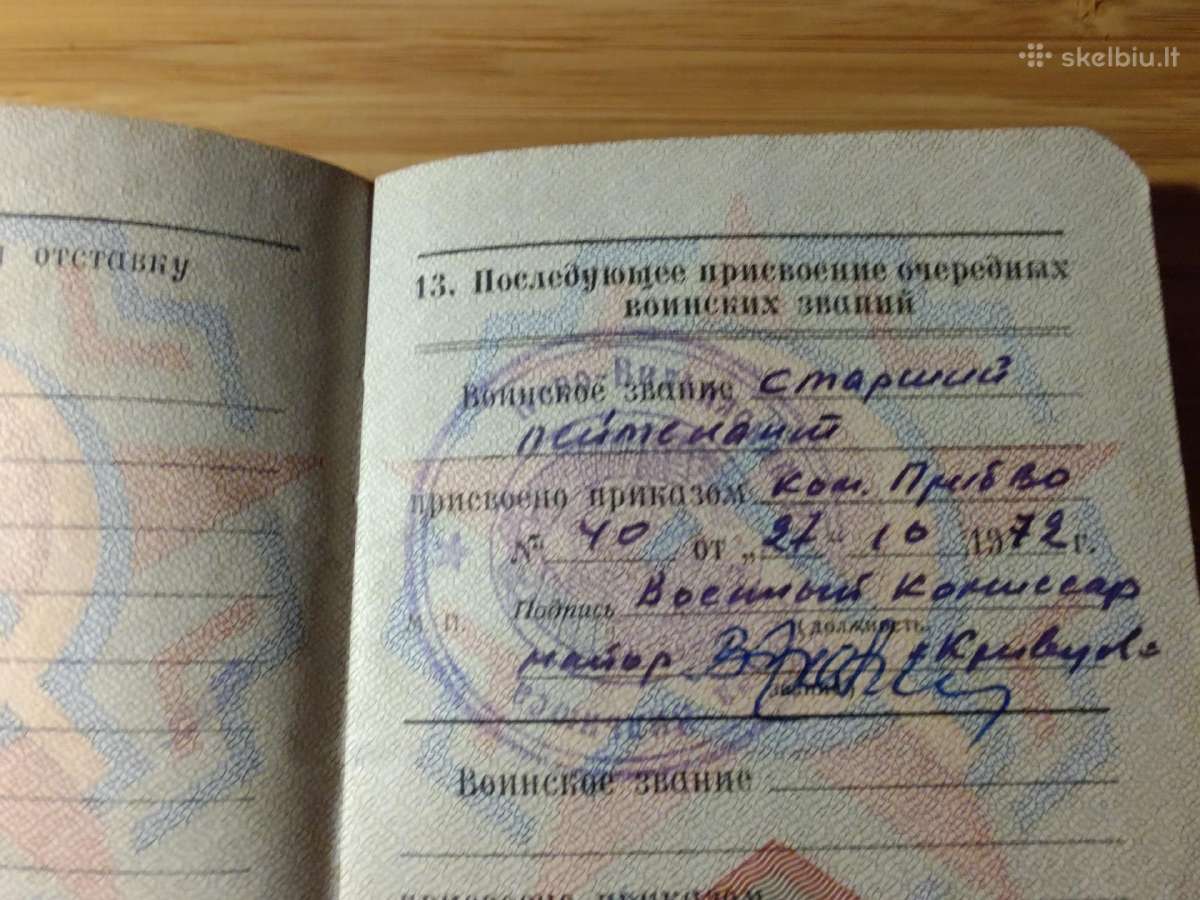 skelbiu.lt
отставку
13. Последующее присвоение очередных
воинских званий
Воинское звание старший
лейтенант
присвоено приказом Ком. ПрибВо
№ 40 от „27“ 10 1972 г.
Подпись Военный Комиссар
М. П. (должность,
майор «Кривцов»
звание)
Воинское звание
присвоено приказом